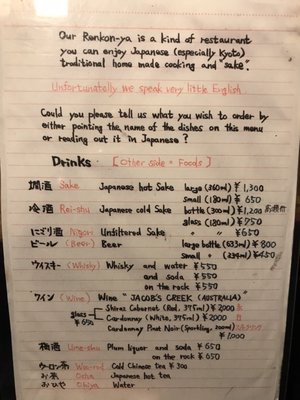 Our Renkon-ya is a kind of restaurant
you can enjoy Japanese (especially Kyoto)
traditional home made cooking and "sake".
Unfortunatelly we speak very little English
Could you please tell us what you wish to order by
either pointing the name of the dishes on this menu
or reading out it in Japanese?
Drinks [Other side = Foods]
燗酒 Sake Japanese hot Sake large (360ml) ¥1,300
small (180ml) ¥ 650
冷酒 Rei-shu Japanese cold Sake bottle (300ml) ¥1,200
glass (180ml) ¥750
にごり酒 Nigori Unfiltered Sake 〃 〃 ¥650
ビール (Beer) Beer large bottle (633ml) ¥800
small 〃 (334ml) ¥450
ウイスキー (Whisky) Whisky and water ¥550
and soda ¥550
on the rock ¥550
ワイン (Wine) Wine "JACOB'S CREEK (AUSTRALIA)"
glass ¥650
Shiraz Cabernet (Red, 375ml) ¥2000 赤
Cardonnay (White, 375ml) ¥2000 白
Cardonnay Pinot Noir (Sparkling, 200ml)
¥1,000
梅酒 Ume-shu Plum liquor and soda ¥650
on the rock ¥650
ウーロン茶 Woo-ron Cold Chinese tea ¥300
お茶 Ocha Japanese hot tea
おひや Ohiya Water